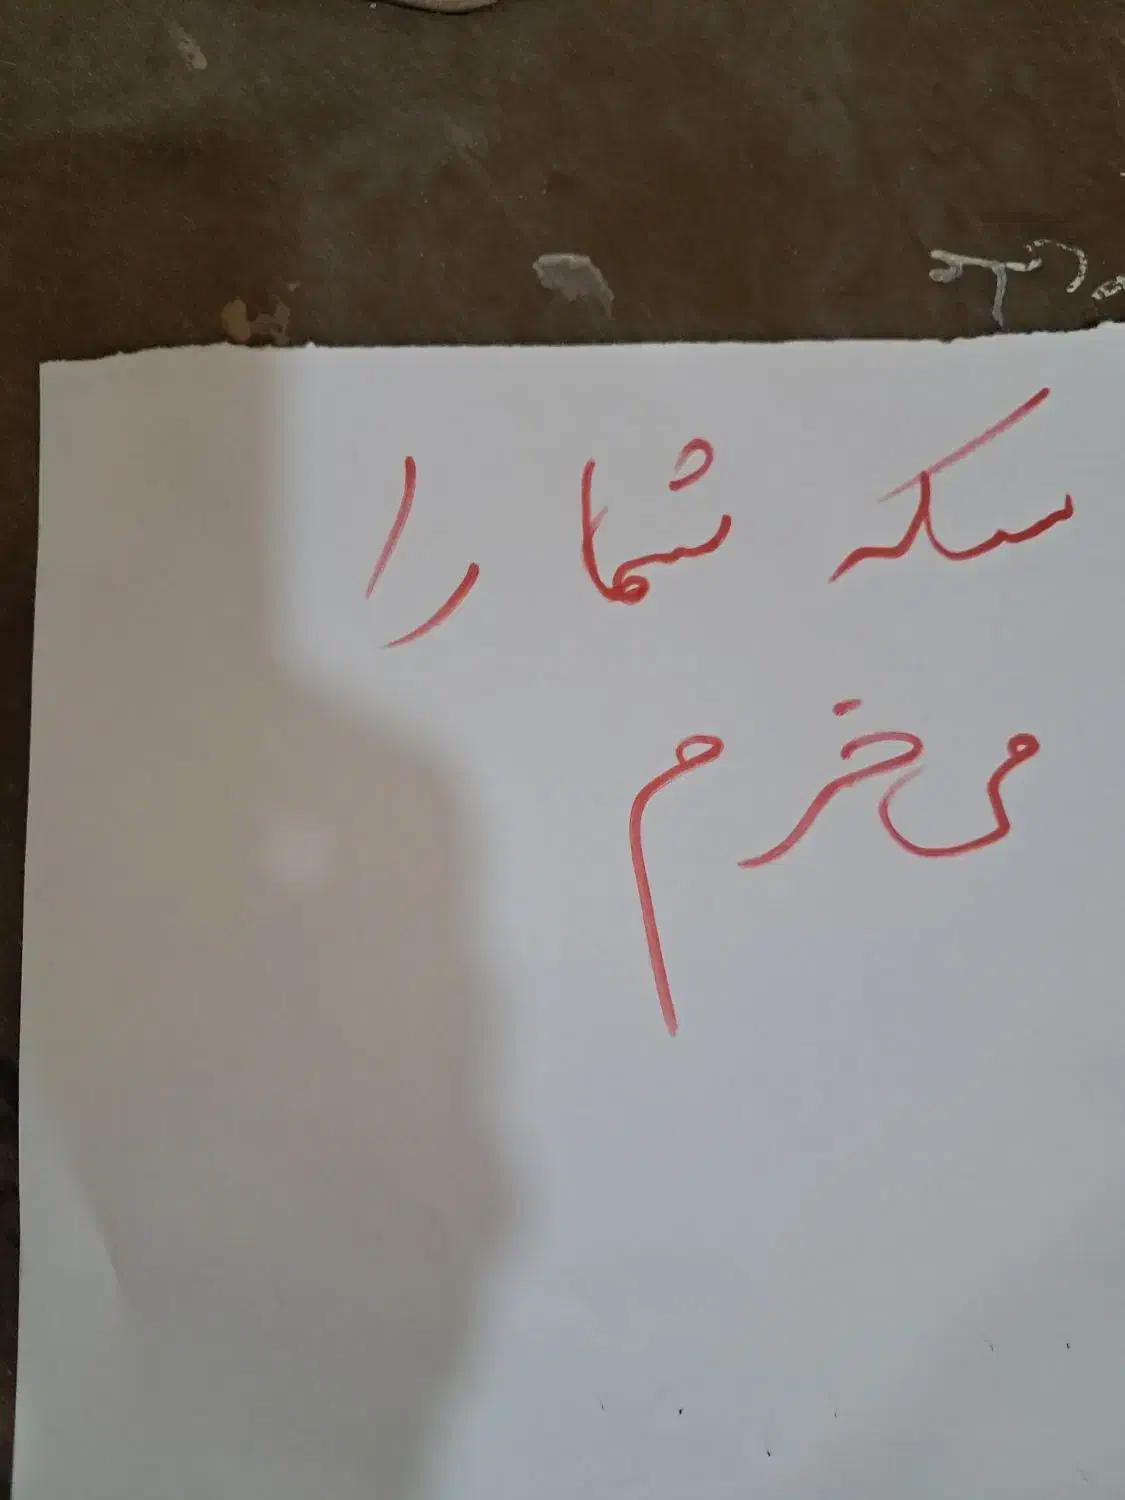 سکه شما را
می‌خرم